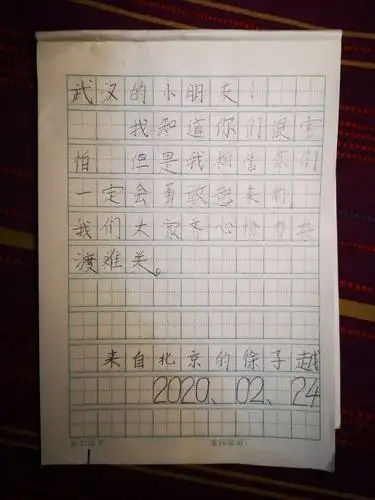 武汉的小朋友：
我知道你们很害
怕，但是我相信你们
一定会勇敢起来的，
我们大家齐心协力共
渡难关。
来自北京的徐子越
2020、02、24